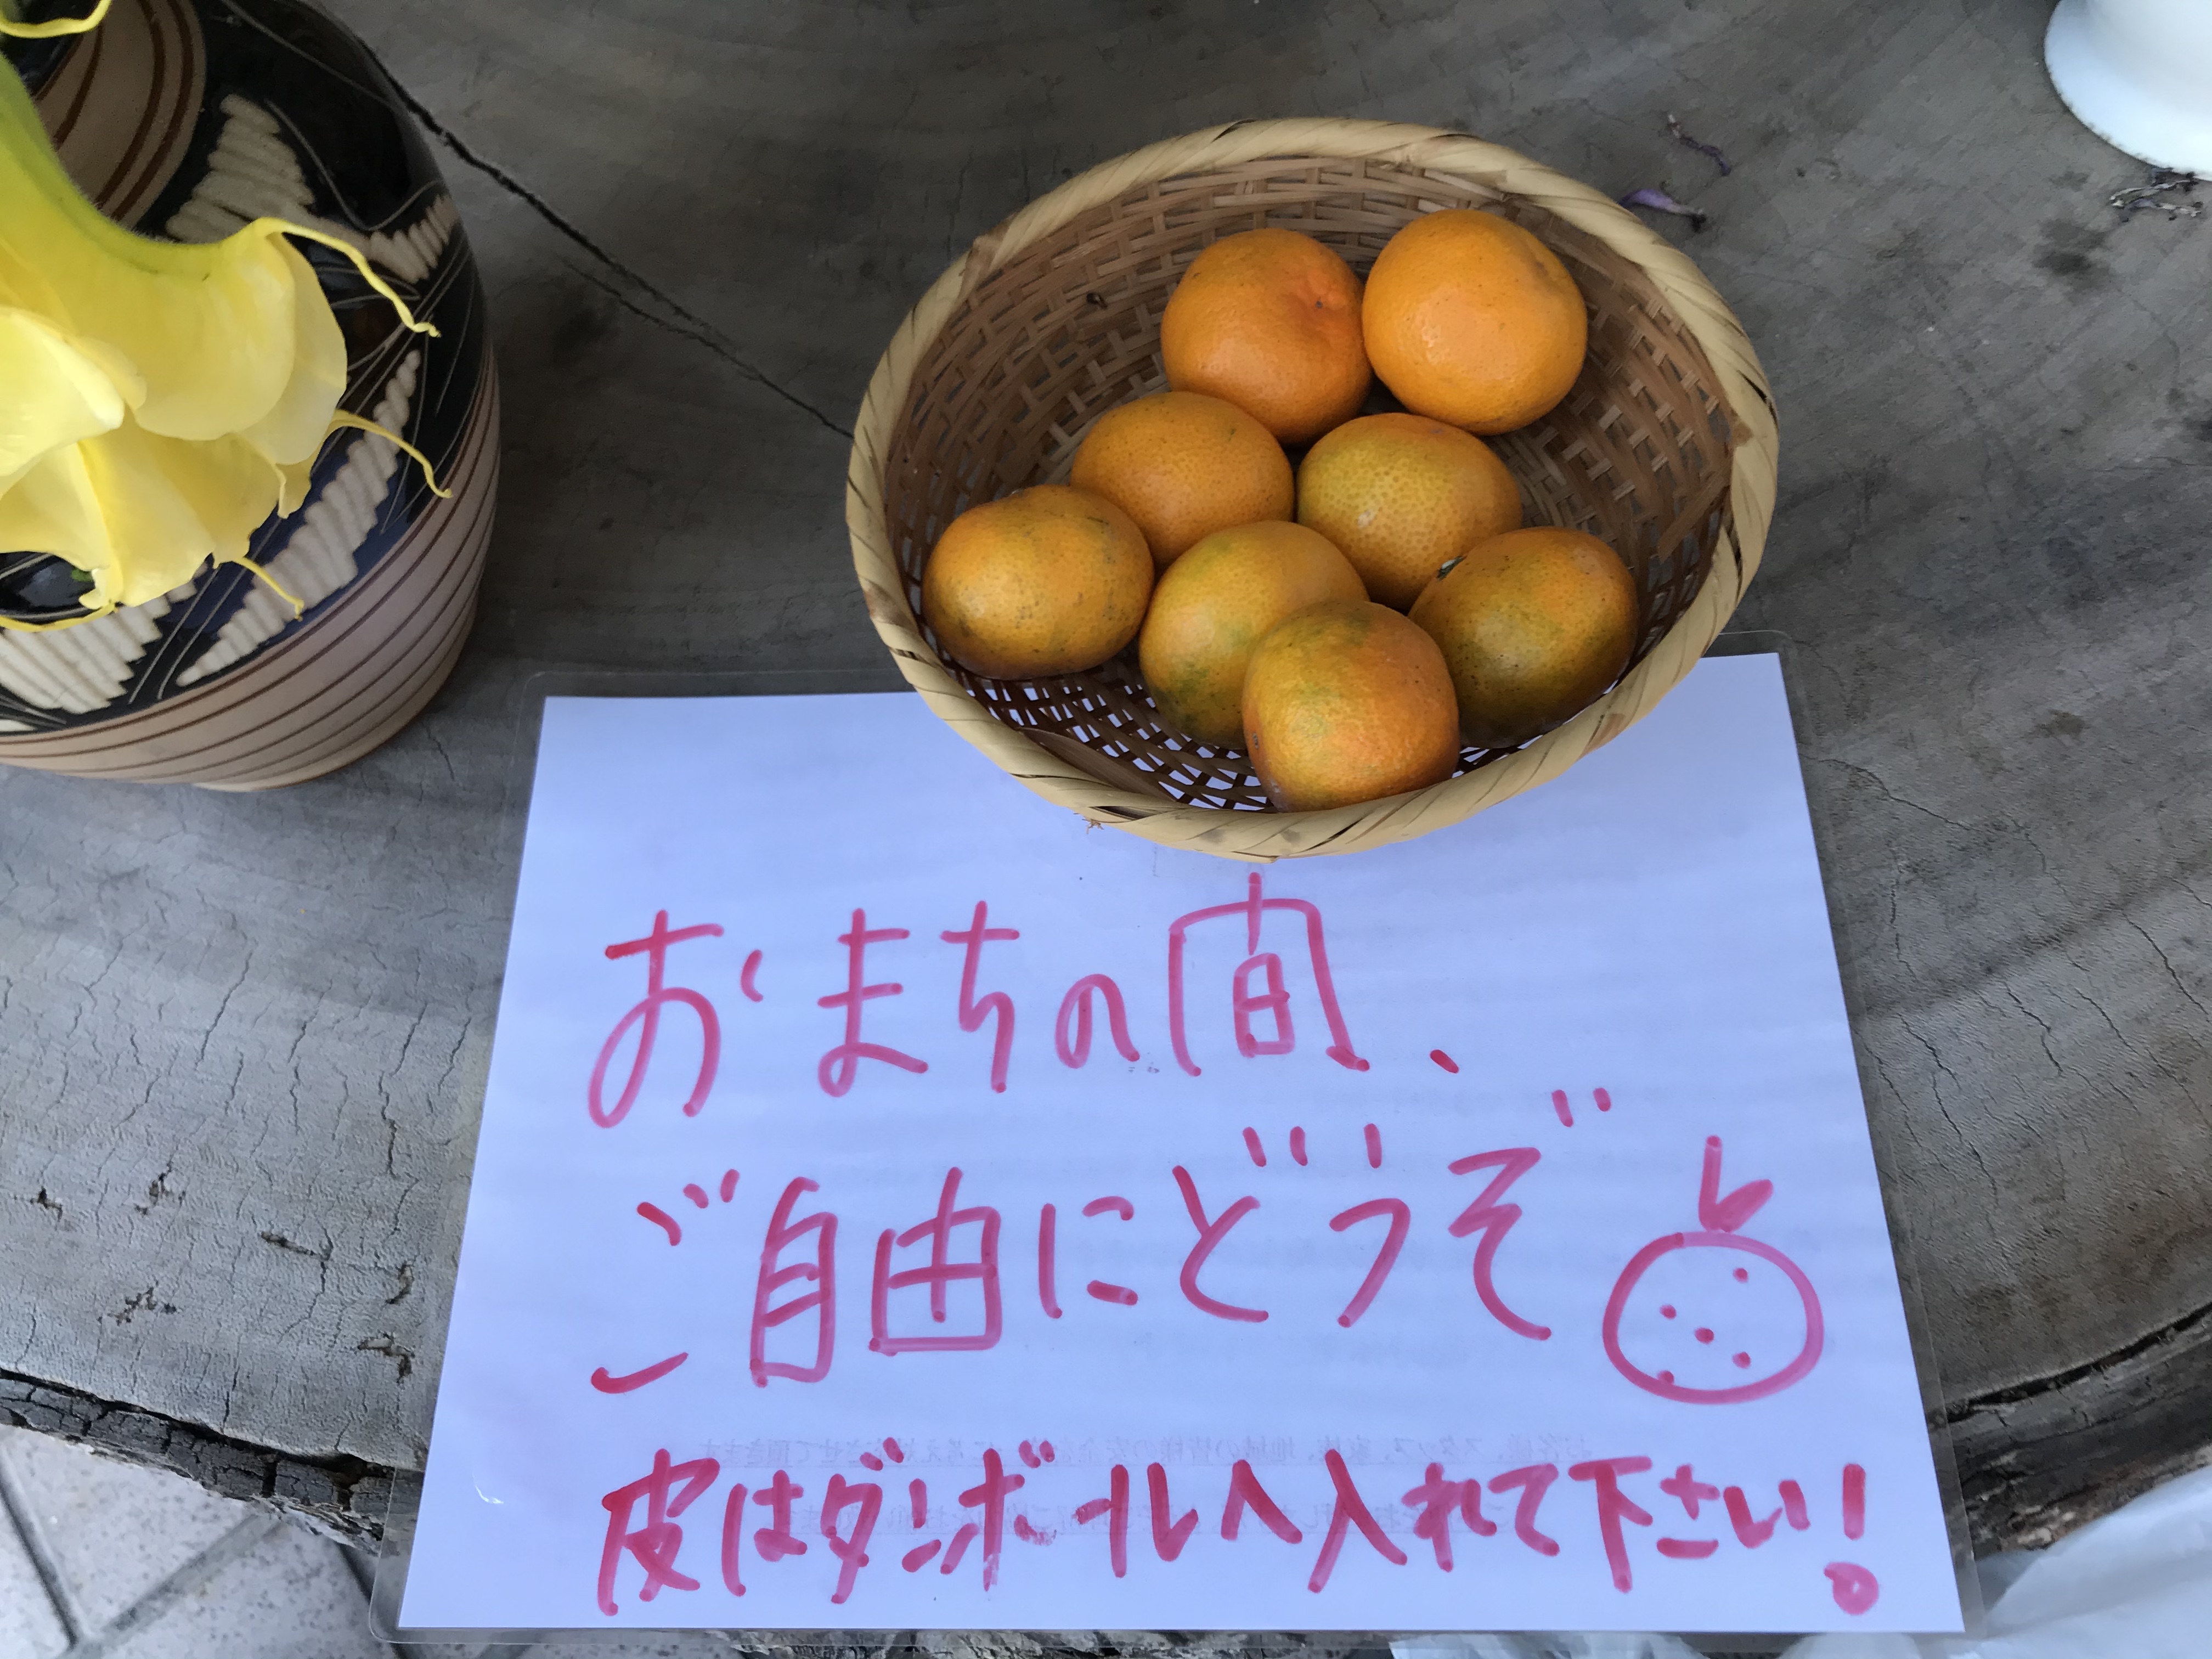 おまちの間、
ご自由にどうぞ
皮はダンボールへ入れて下さい!